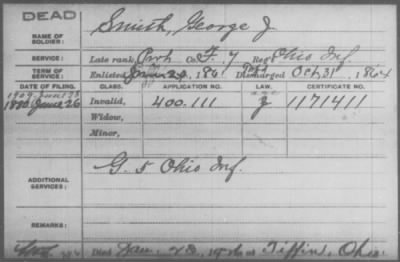 DEAD
NAME OF SOLDIER: Smith, George J
SERVICE: Late rank, Co. F. 7 Reg't Ohio Inf.
TERM OF SERVICE: Enlisted 186 Discharged Oct 31, 1864
DATE OF FILING. CLASS. APPLICATION NO. LAW. CERTIFICATE NO.
1880 June 26 Invalid, 400.111 1171411
Widow,
Minor,
ADDITIONAL SERVICES: G. 5 Ohio Inf.
REMARKS:
Died at Tiffin, Ohio.